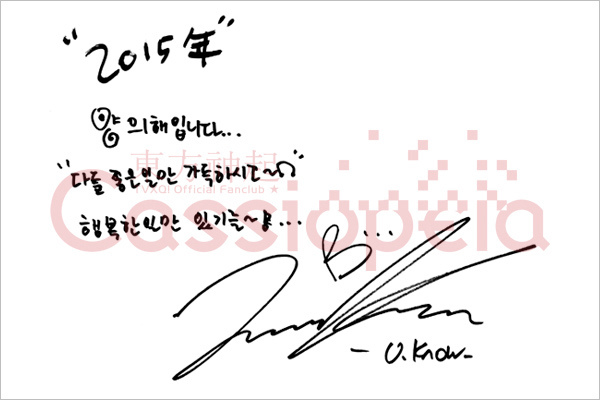 "2015年"
양의해입니다...
東方神起
TVXQ! Official Fanclub ★
"다들 좋은일만 가득하시고~♡"
Cassiopeia
행복한일만 있기를~양...
B...
- U.Know-